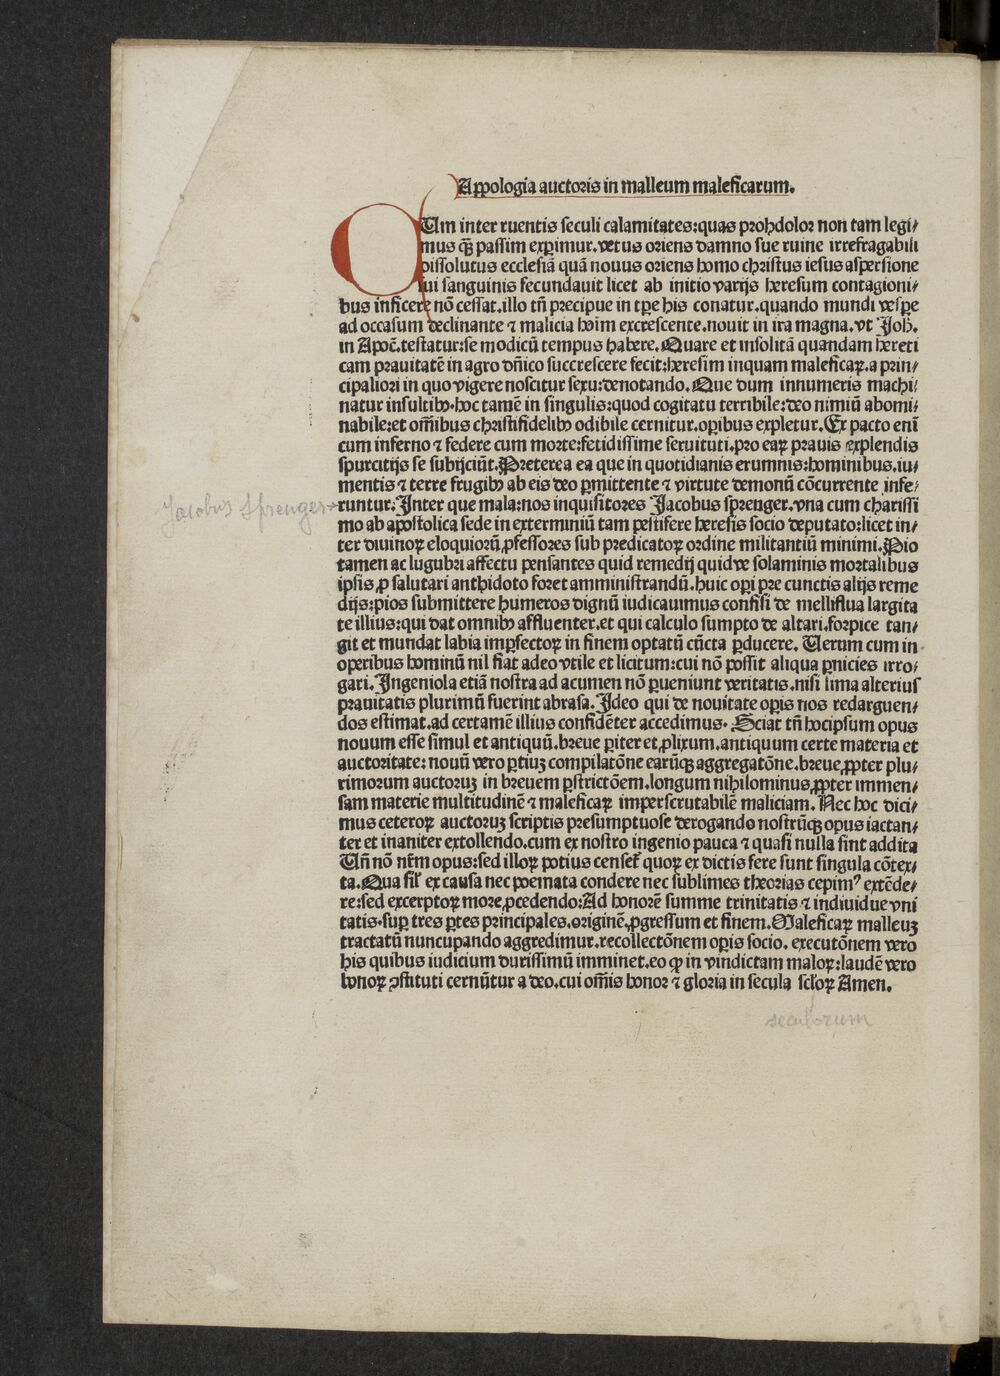 Appologia auctoris in malleum maleficarum.
CUm inter ruentis seculi calamitates:quas prohdolor non tam legi⸗
mus qꝫ̄ passim experimur.vetus oriens damno sue ruine irrefragabili
dissolutus ecclesiā quā nouus oriens homo christus iesus aspersione
sui sanguinis fecundauit licet ab initio varijs heresum contagioni⸗
bus inficere nō cessat.illo tn̄ precipue in tꝑe his conatur.quando mundi vesꝑe
ad occasum declinante ⁊ malicia hoīm excrescente.nouit in ira magna.vt Joh.
in Apoc̄.testatur:se modicū tempus habere. Quare et insolitā quandam hereti
cam prauitatē in agro dn̄ico succrescere fecit:heresim inquam maleficaꝝ.a prin⸗
cipaliori in quo vigere noscitur sexu:denotando. Que dum innumeris machi⸗
natur insultibꝰ.hoc tamē in singulis:quod cogitatu terribile:deo nimiū abomi⸗
nabile:et om̄ibus christifidelibꝰ odibile cernitur.oꝑibus expletur. Ex pacto enī
cum inferno ⁊ federe cum morte:fetidissime seruituti.pro eaꝝ prauis explendis
spurcitijs se subijciūt. Preterea ea que in quotidianis erumnis:hominibus.iu⸗
mentis ⁊ terre frugibꝰ ab eis deo ꝑmittente ⁊ virtute demonū cōcurrente infe⸗
Jacobus Sprenger runtur. Inter que mala:nos inquisitores Jacobus sprenger.vna cum charissi
mo ab apostolica sede in exterminiū tam pestifere heresis socio deputato:licet in⸗
ter diuinoꝝ eloquiorū ꝓfessores sub predicatoꝝ ordine militantiū minimi. Pio
tamen ac lugubri affectu pensantes quid remedij quidve solaminis mortalibus
ipsis ꝓ salutari anthidoto foret amministrandū.huic oꝑi pre cunctis alijs reme
dijs:pios submittere humeros dignū iudicauimus confisi de melliflua largita
te illius:qui dat omnibꝰ affluenter.et qui calculo sumpto de altari.forpice tan⸗
git et mundat labia imꝑfectoꝝ in finem optatū cūcta ꝑducere. Uerum cum in
operibus hominū nil fiat adeo vtile et licitum:cui nō possit aliqua ꝑnicies irro⸗
gari. Ingeniola etiā nostra ad acumen nō ꝑueniunt veritatis.nisi lima alterius
prauitatis plurimū fuerint abrasa. Ideo qui de nouitate oꝑis nos redarguen⸗
dos estimat.ad certamē illius confidēter accedimus. Sciat tn̄ hocipsum opus
nouum esse simul et antiquū.breue ꝑiter et ꝓlixum.antiquum certe materia et
auctoritate: nouū vero ꝑtiuꝫ compilatōne earūqꝫ aggregatōne.breue ꝓpter plu⸗
rimorum auctoruꝫ in breuem ꝑstrictōem.longum nihilominus ꝓpter immen⸗
sam materie multitudinē ⁊ maleficaꝝ imperscrutabilē maliciam. Nec hoc dici⸗
mus ceteroꝝ auctoruꝫ scriptis presumptuose derogando nostrūqꝫ opus iactan⸗
ter et inaniter extollendo.cum ex nostro ingenio pauca ⁊ quasi nulla sint addita
Un̄ nō nr̄m opus:sed illoꝝ potius censet̄ quoꝝ ex dictis fere sunt singula cōtex⸗
ta. Qua sil̄ ex causa nec poemata condere nec sublimes theorias cepimꝰ extēde⸗
re:sed excerptoꝝ more ꝓcedendo:Ad honorē summe trinitatis ⁊ indiuidue vni
tatis.suꝑ tres ꝑtes principales.originē ꝓgressum et finem. Maleficaꝝ malleuꝫ
tractatū nuncupando aggredimur.recollectōnem oꝑis socio. executōnem vero
his quibus iudicium durissimū imminet.eo ꝙ in vindictam maloꝝ:laudē vero
bonoꝝ ꝯstituti cernūtur a deo.cui om̄is honor ⁊ gloria in secula sclōꝝ Amen.
seculorum